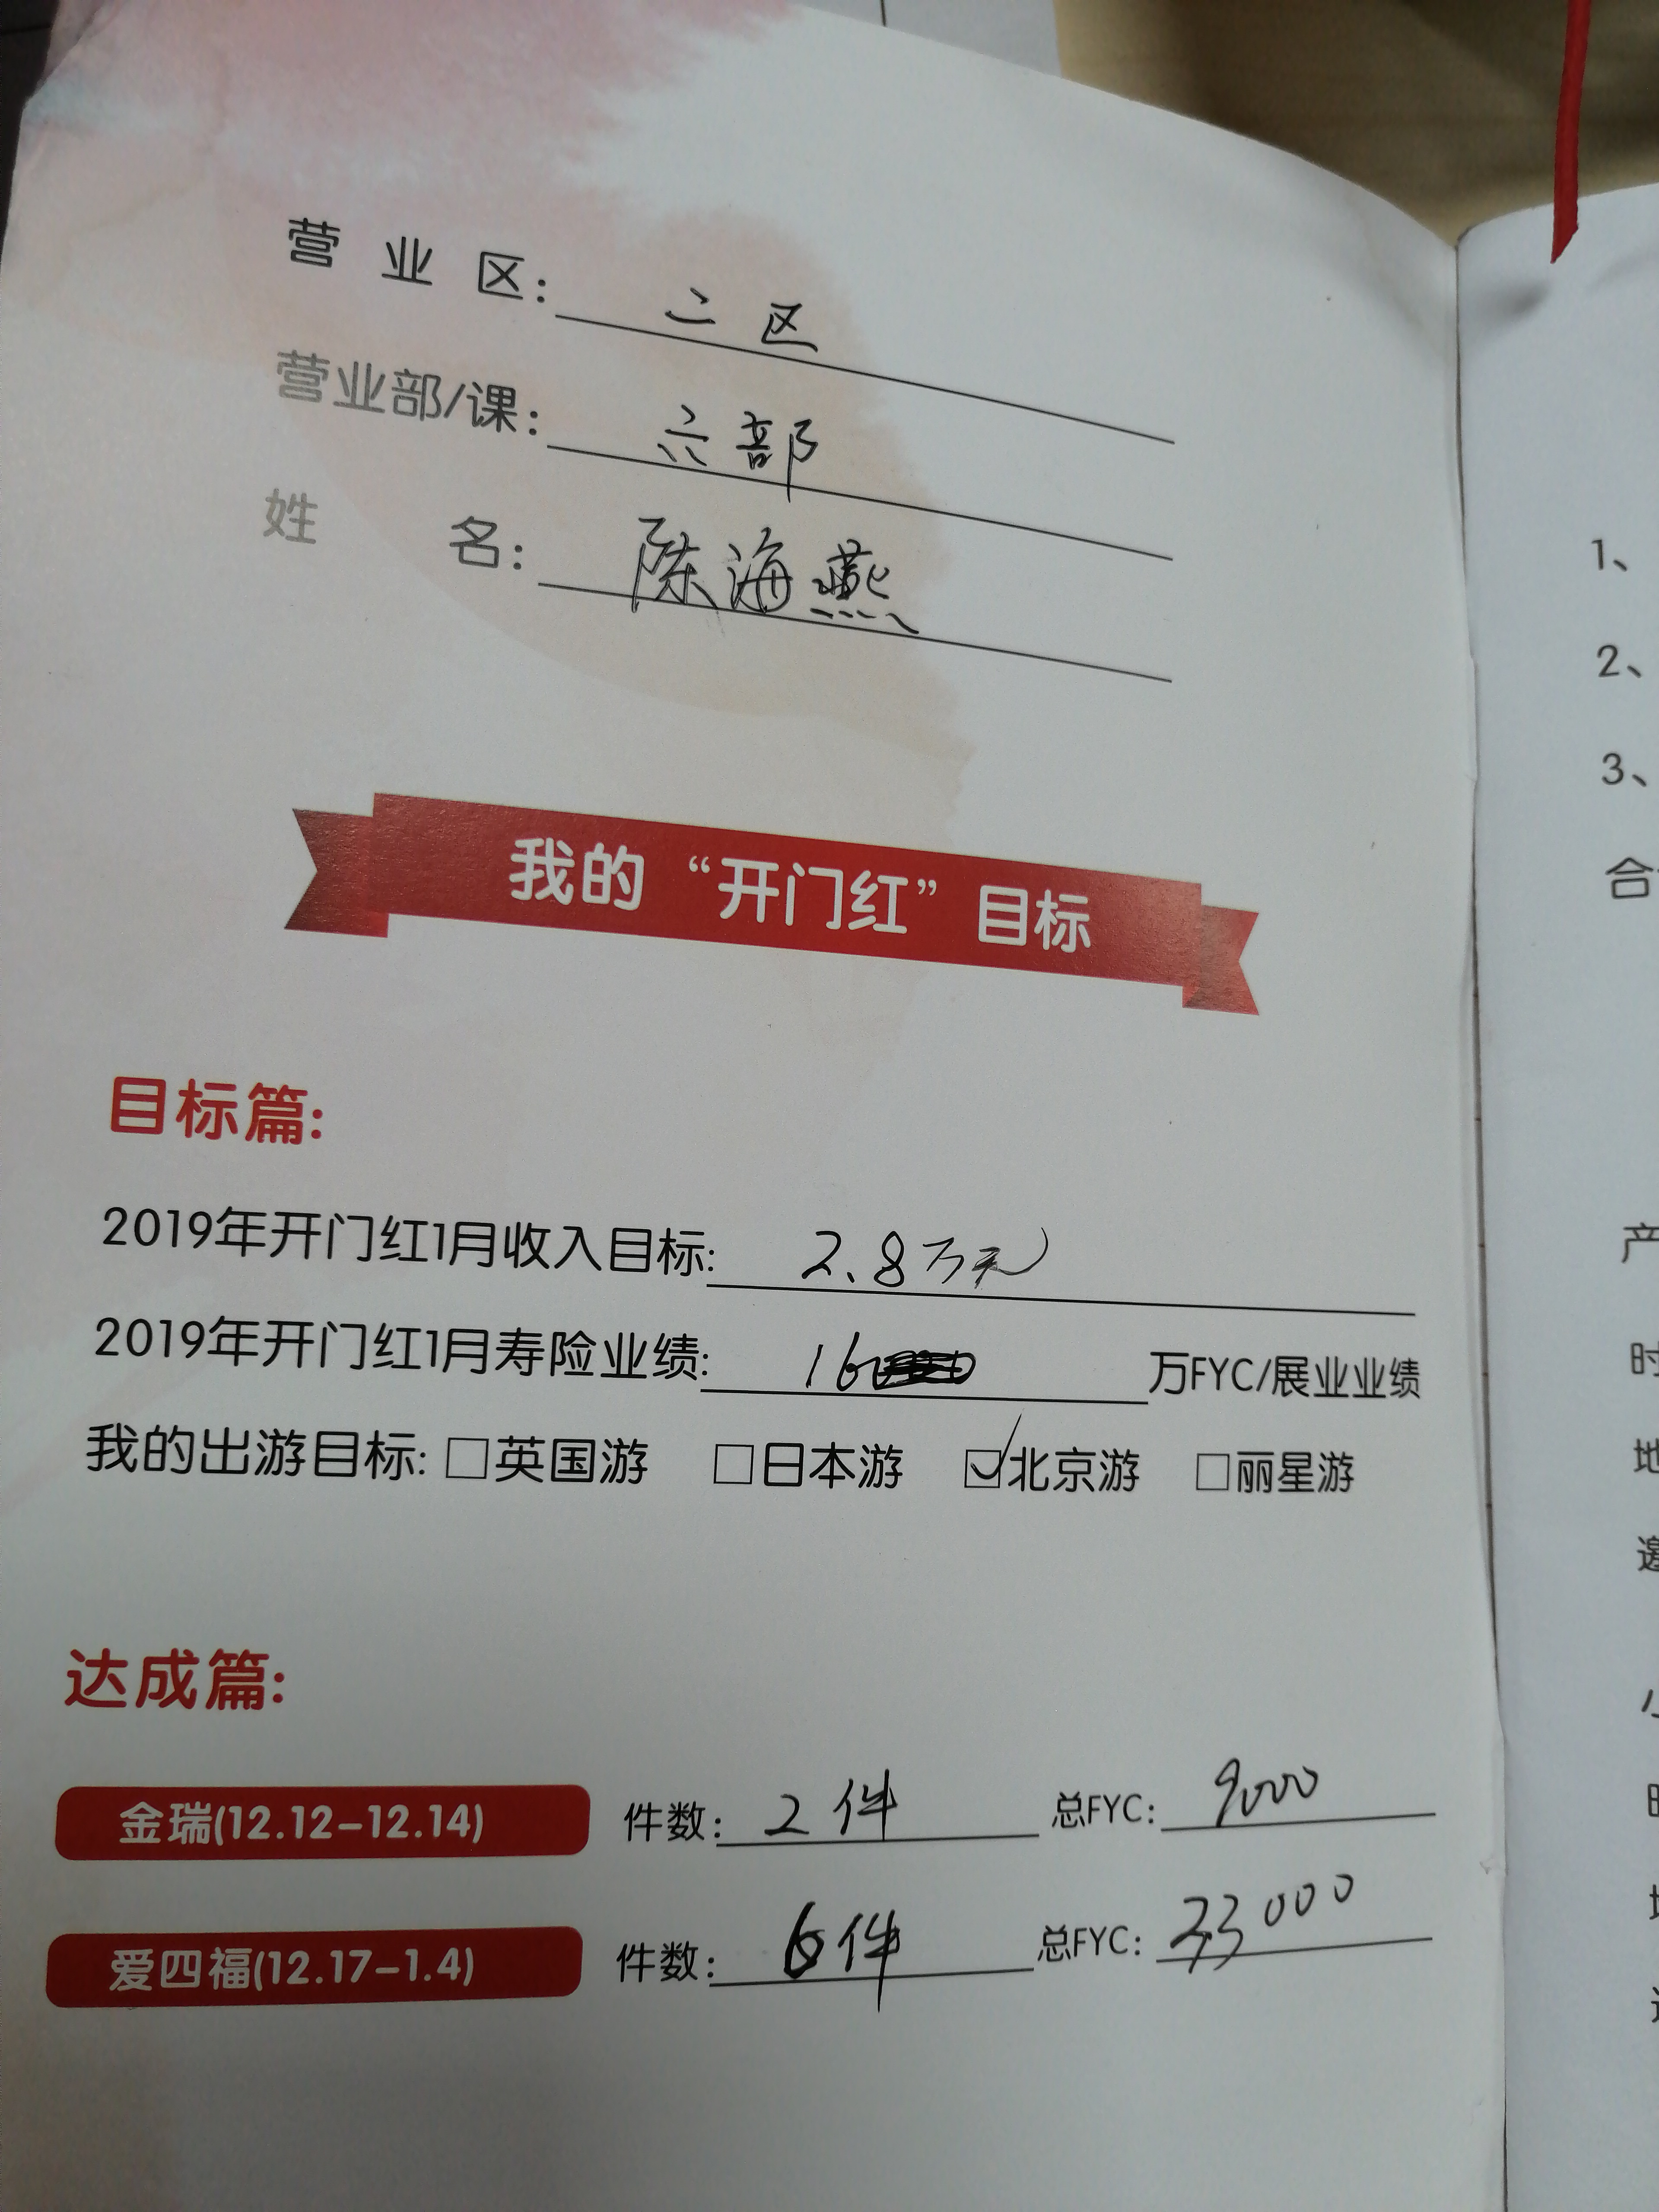 营业区: 二区
营业部/课: 六部
姓名: 陈海燕
我的“开门红”目标
目标篇:
2019年开门红1月收入目标: 2.8万元
2019年开门红1月寿险业绩: 16 万FYC/展业业绩
我的出游目标: □英国游 □日本游 ☑北京游 □丽星游
达成篇:
金瑞(12.12-12.14) 件数: 2件 总FYC: 9000
爱四福(12.17-1.4) 件数: 6件 总FYC: 33000
1、
2、
3、
合
产
时
地
邀